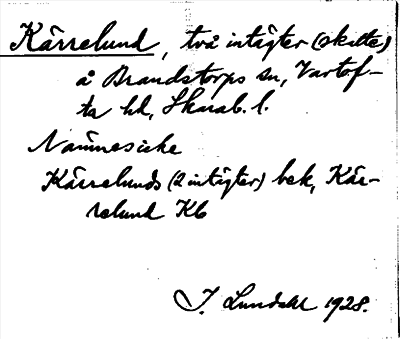 Kärrelund, två intägter (skilda)
å Brandstorps sn, Vartof-
ta hd, Skarab. l.
Kärrelunds (2 intägter) bek, Kär-
relund Kb
J. Lundahl 1928.